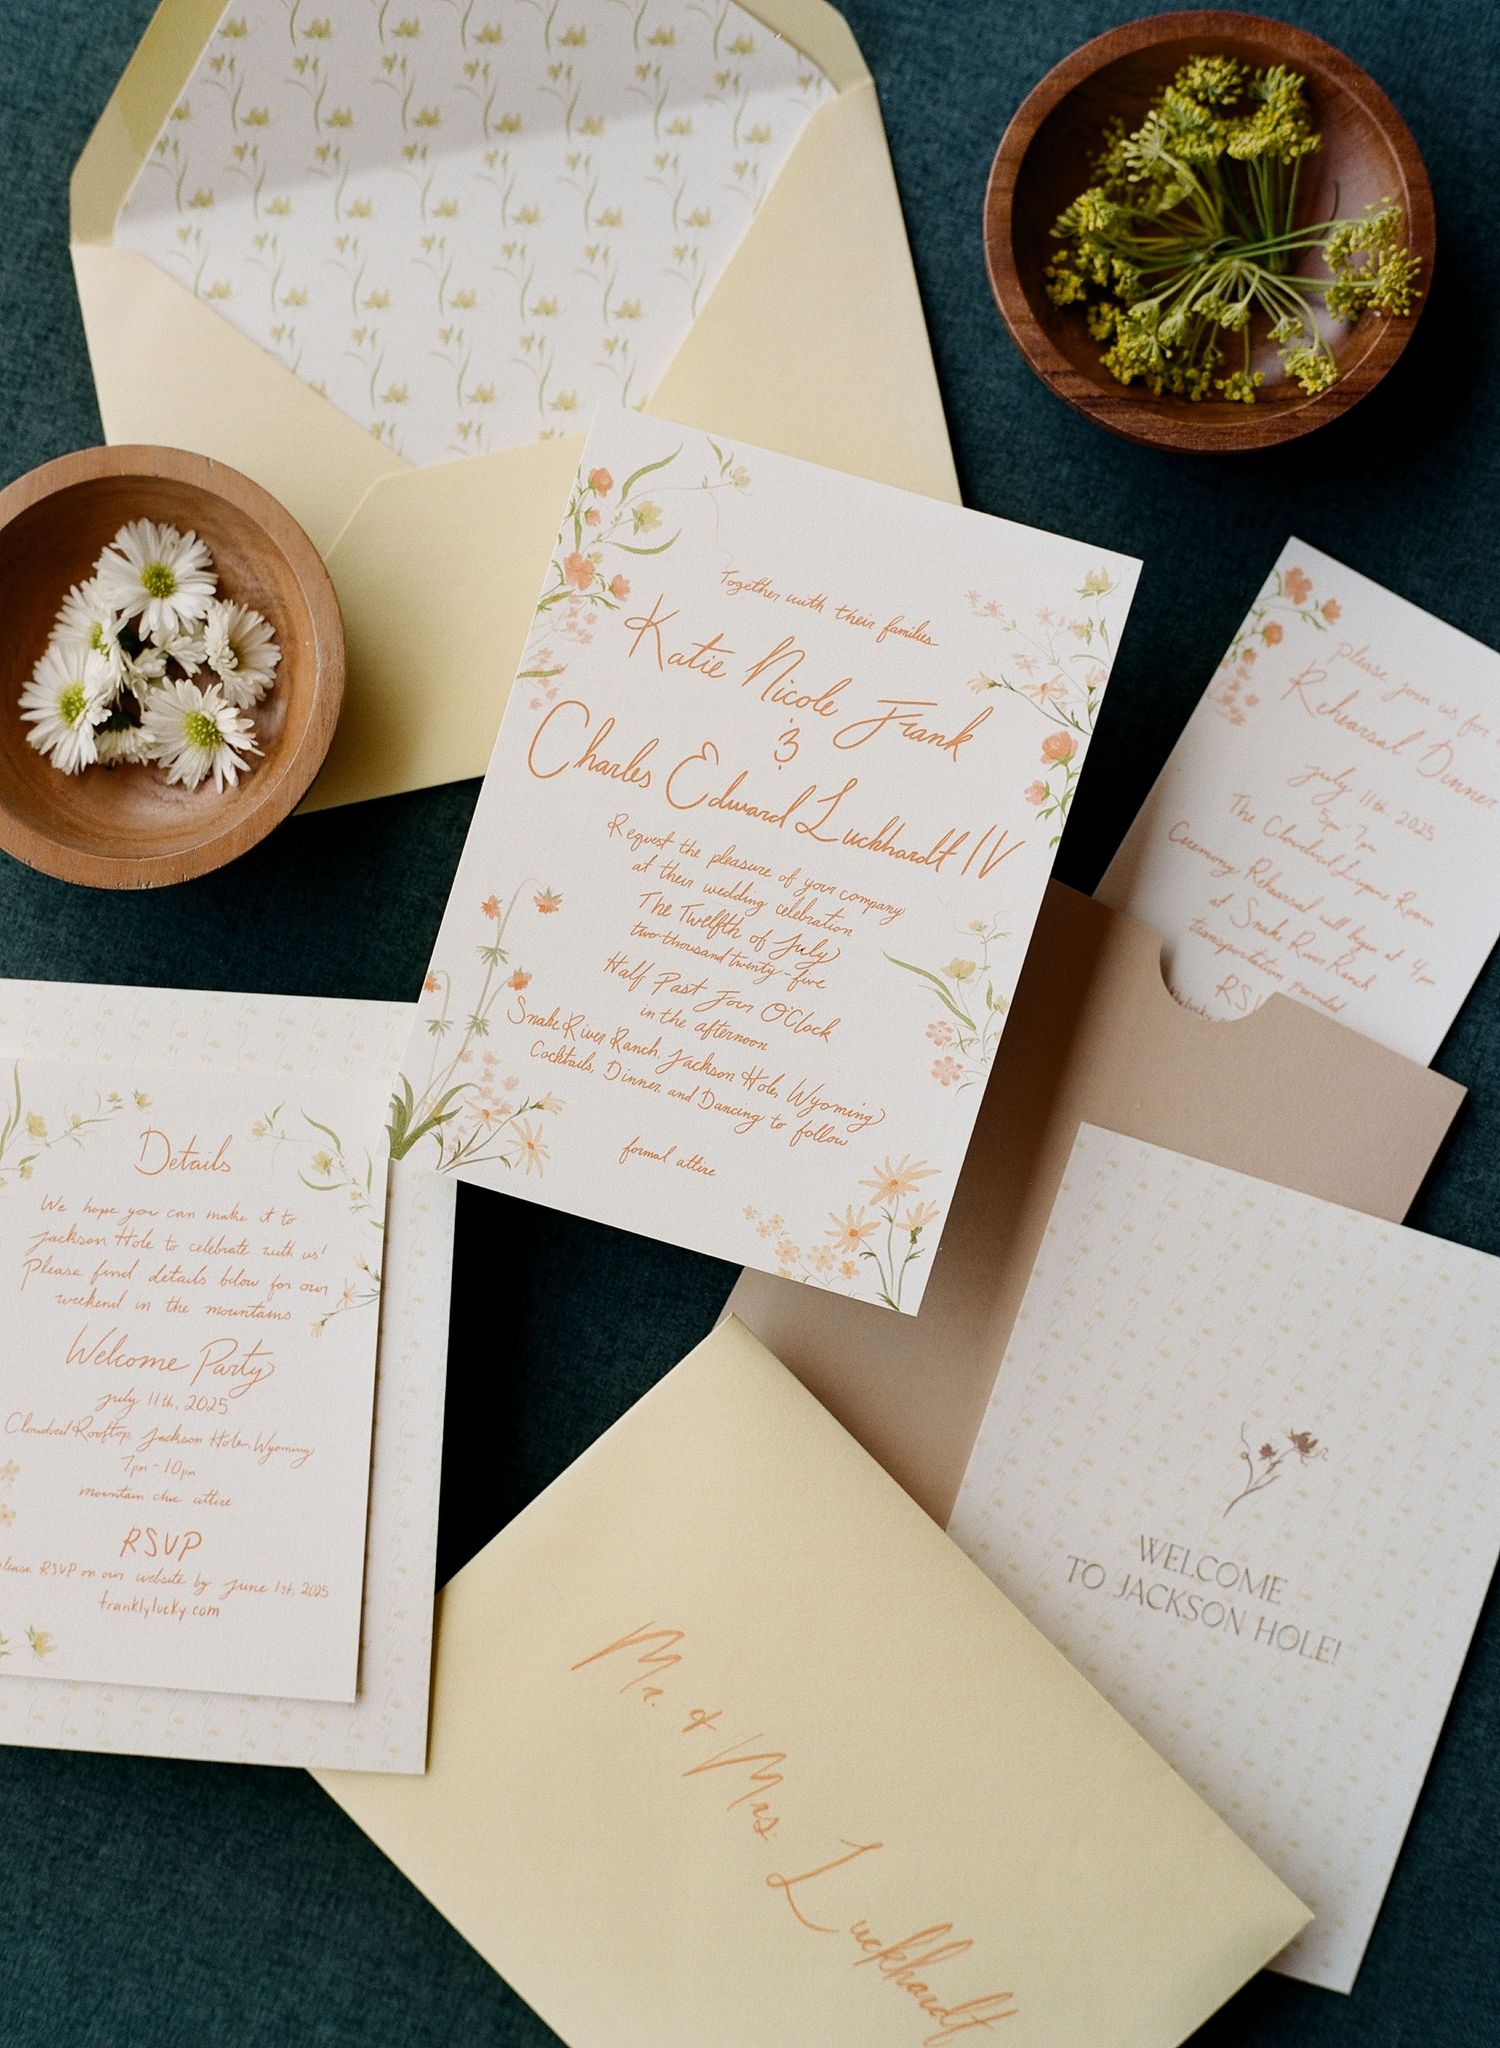 Together with their families
Katie Nicole Frank
&
Charles Edward Luckhardt IV
Request the pleasure of your company
at their wedding celebration
The Twelfth of July
two-thousand twenty-five
Half Past Four O'Clock
in the afternoon
Snake River Ranch, Jackson Hole, Wyoming
Cocktails, Dinner, and Dancing to follow
formal attire
please join us for
Rehearsal Dinner
july 11th, 2025
5pm-7pm
The Cloudveil Lupine Room
Ceremony Rehearsal will begin at 4pm
at Snake River Ranch
transportation provided
Details
We hope you can make it to
Jackson Hole to celebrate with us!
Please find details below for our
weekend in the mountains
Welcome Party
july 11th, 2025
Cloudveil Rooftop, Jackson Hole, Wyoming
7pm - 10pm
mountain chic attire
RSVP
please RSVP on our website by june 1st, 2025
franklylucky.com
WELCOME
TO JACKSON HOLE!
Mr. & Mrs. Luckhardt